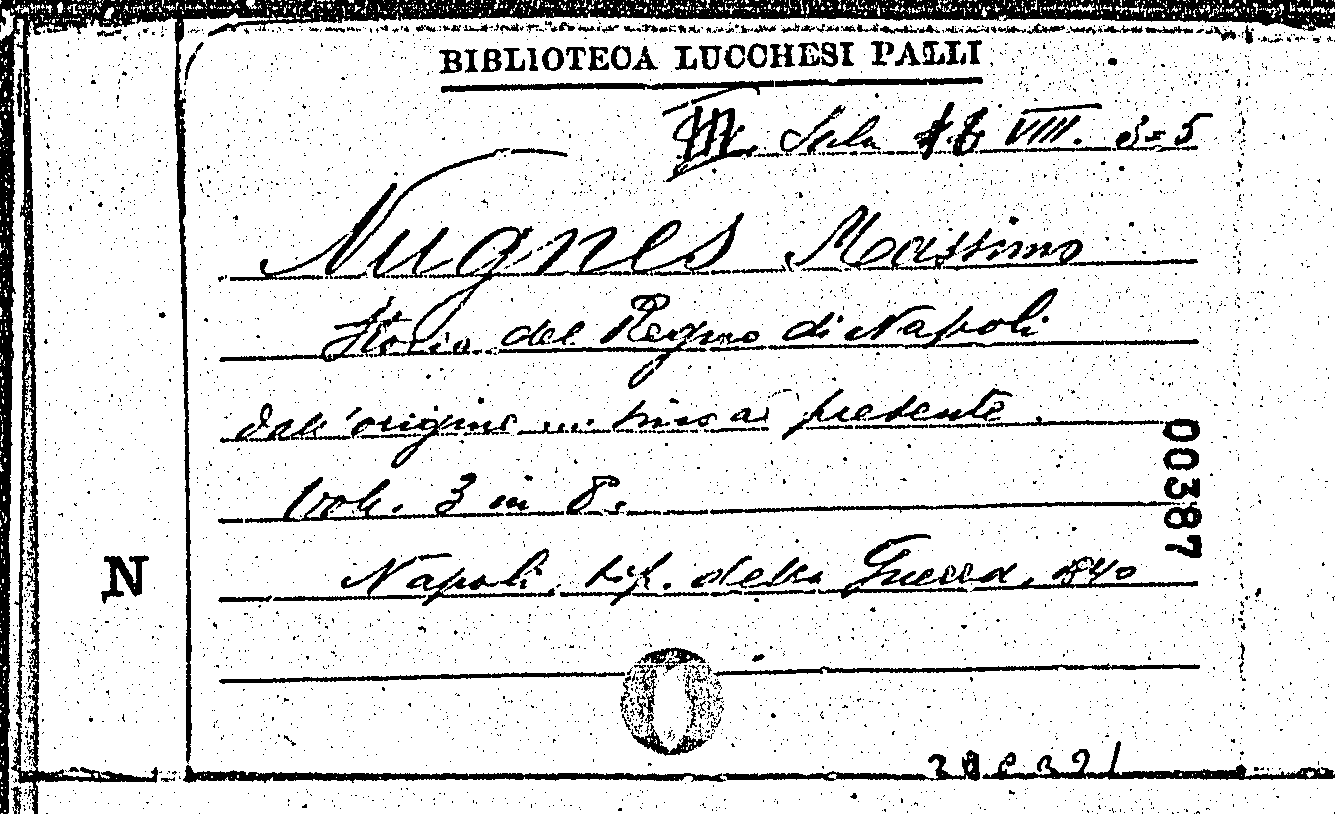 BIBLIOTECA LUCCHESI PALLI
Sala VIII. 3=5
Nugnes Massimo
Storia del Regno di Napoli
dall'origine ... sino al presente.
Vol. 3 in 8.
Napoli, tip. della Guerra, 1840
00387
N